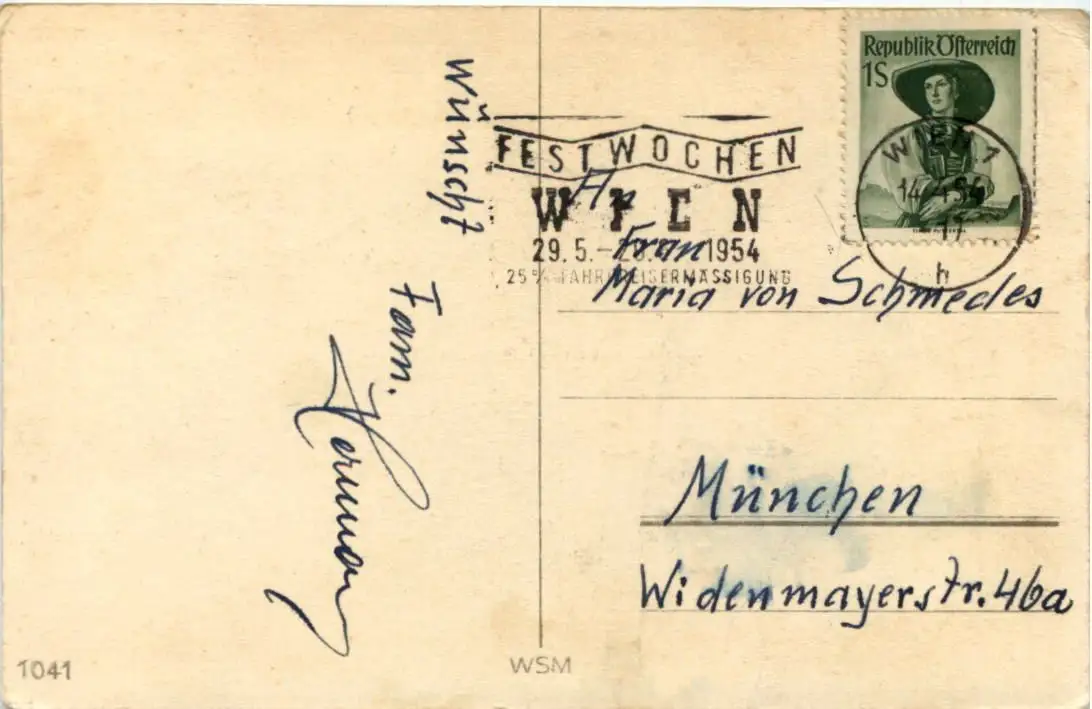 wünscht
Fam.
Republik Österreich
1S
WIEN 1
14
54
h
FESTWOCHEN
WIEN
29. 5. – 1954
25% FAHRPREISERMÄSSIGUNG
An
Frau
Maria von Schmedes
München
Widenmayerstr. 46a
1041
WSM